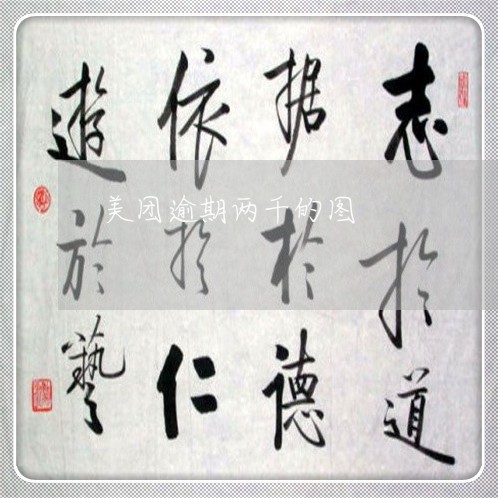 志於道
据於德
依於仁
遊於藝
美团逾期两千的图